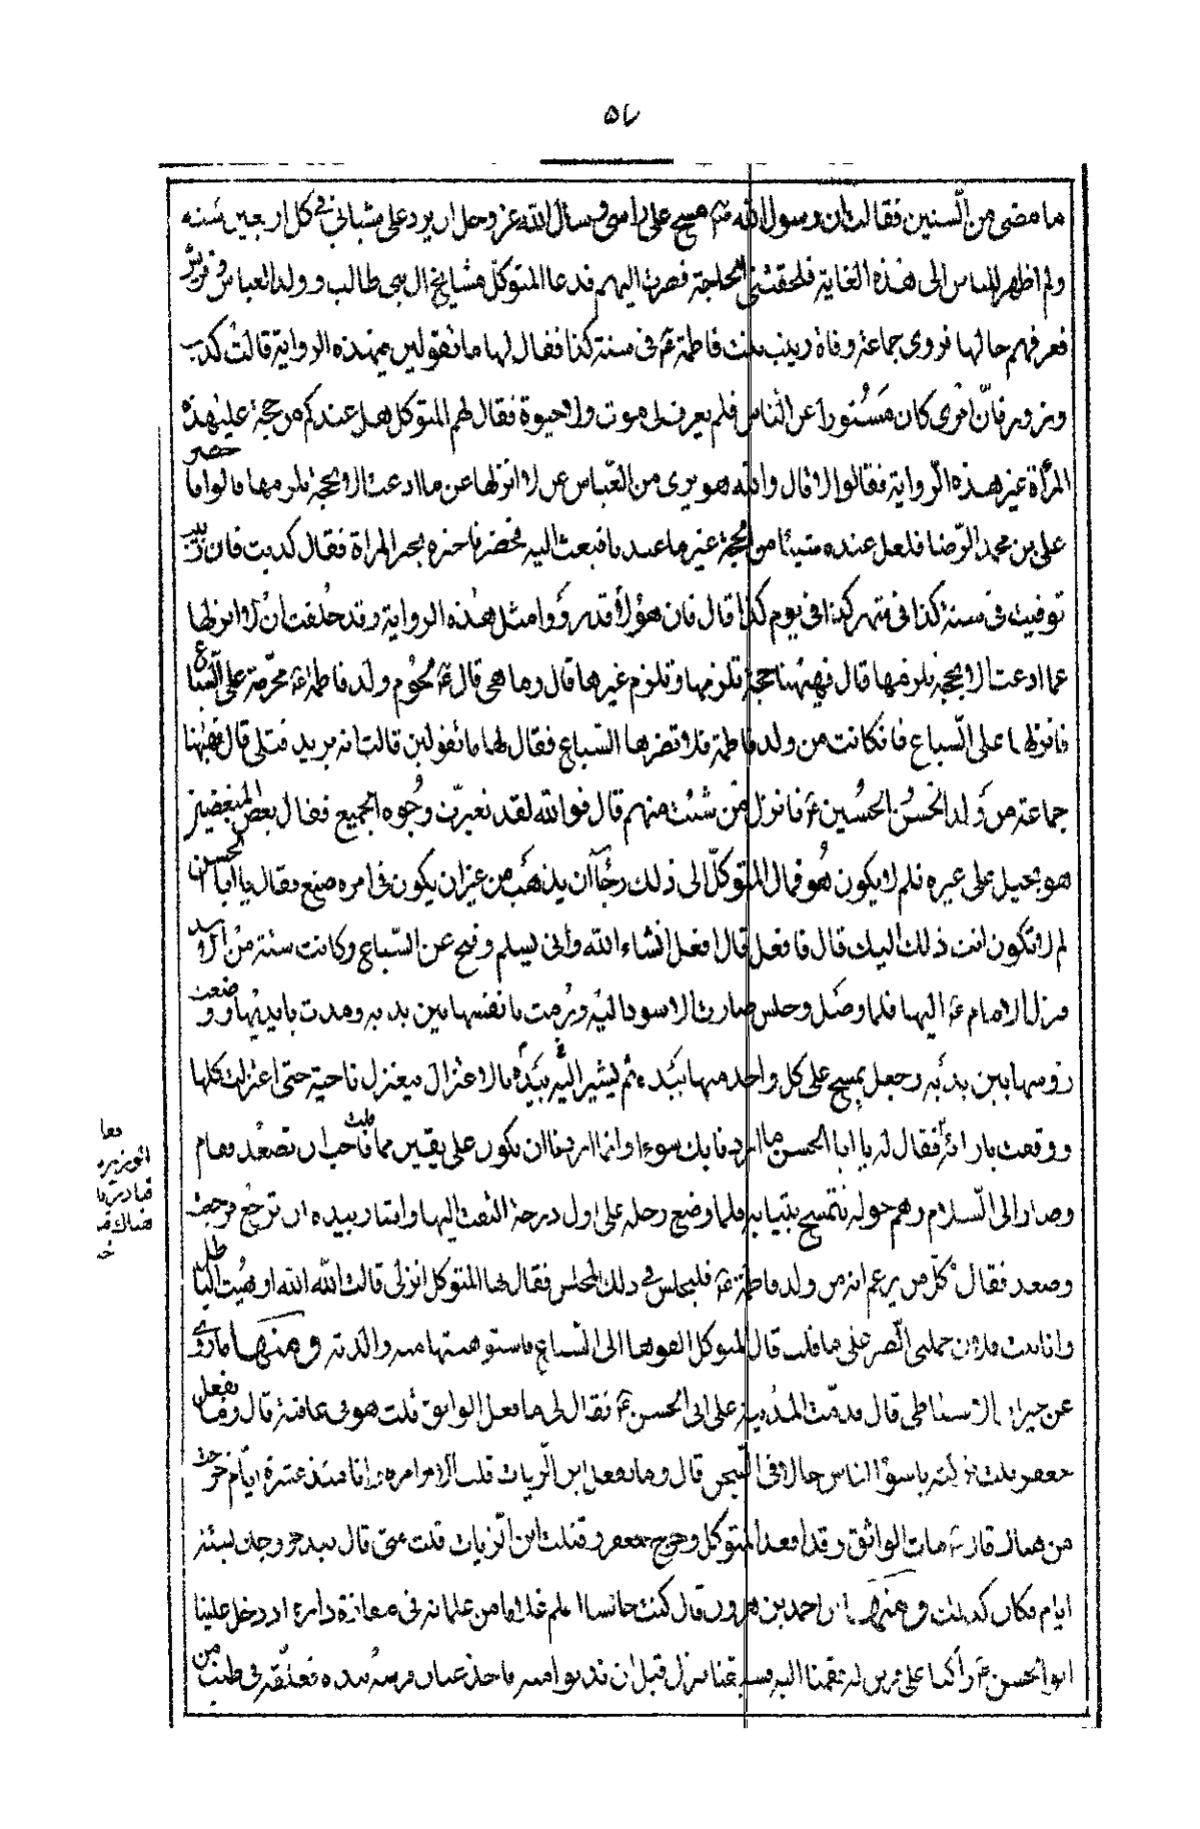 ٥٧
ما مضى من السنين فقالت ان رسول الله ص مسح على راسى وسال الله عز وجل ان يرد على شبابى فى كل اربعين سنه
ولم اظهر للناس الى هذه الغاية فلحقتنى الحاجة فصرت اليهم فدعا المتوكل مشايخ ال ابى طالب وولد العباس وقريش
فعرفهم حالها فروى جماعة وفاة زينب بنت فاطمة ع فى سنة كذا فقال لها ما تقولين بهذه الرواية قالت كذب
وزور فان امرى كان مَسْتُوراً عن الناس فلم يعرف لى موت ولا حيوة فقال لهم المتوكل هل عندكم من حجة على هذه
المرأة غير هذه الرواية فقالوا لا قال والله هو برى من العباس ان لا انزلها عن ما ادعت الا بحجة تلزمها قالوا فاحضر
على بن محمد الرضا فلعل عنده شيئا من الحجة غير ما عندنا فبعث اليه فحضر فاخبره بخبر المراة فقال كذبت فان زينب
توفيت فى سنة كذا فى شهر كذا فى يوم كذا قال فان هؤلاء قد رووا مثل هذه الرواية وقد حلفت ان لا انزلها
عما ادعت الا بحجة تلزمها قال فههنا حجة تلزمها وتلزم غيرها قال وما هى قال ع لحوم ولد فاطمة ع محرمة على السباع
فانزلها على السباع فان كانت من ولد فاطمة فلا تضرها السباع فقال لها ما تقولين قالت انه يريد قتلى قال فههنا
جماعة من ولد الحسن والحسين ع فانزل من شئت منهم قال فوالله لقد تغيرت وجوه الجميع فقال بعض المبغضين
هو يحيل على غيره فلم لا يكون هُو فمال المتوكل الى ذلك رجاء ان يذهب من غير ان يكون فى امره صنع فقال يا ابا الحسن
لم لا تكون انت ذلك اليك قال فافعل قال افعل انشاء الله وأتى بسلم وفتح عن السباع وكانت ستة من الاسد
فنزل الامام ع اليها فلما وصل وجلس صارت الاسود اليه ورمت بانفسها بين يديه ومدت بايديها ووضعت
رؤسها بين يديه وجعل يمسح على كل واحد منها بيده ثم يشير اليه بيده بالاعتزال فيعتزل ناحية حتى اعتزلت كلها
ووقعت بازائه فقال له يا ابا الحسن ما اردنا بك سوءا وانما اردنا ان نكون على يقين مما قلت فاحب ان تصعد فقام
وصار الى السلام وهم حوله تتمسح بثيابه فلما وضع رجله على اول درجة التفت اليها واشار بيده ان ترجع فرجعت
وصعد فقال كل من زعم انه من ولد فاطمة ع فليجلس فى ذلك المجلس فقال لها المتوكل انزلى قالت الله الله ادعيت الباطل
وانا بنت فلان حملنى الضر على ما قلت قال المتوكل القوها الى السباع فاستوهبتها منه والدته ومنها ما روى
عن خيران الاسباطى قال قدمت المدينة على ابى الحسن ع فقال لى ما فعل الواثق قلت هو فى عافية قال وما يفعل
جعفر قلت تركته باسوأ الناس حالا فى السجن قال وما يفعل ابن الزيات قلت الامر امره وانا منذ عشرة ايام خرجت
من هناك قال ع مات الواثق وقد اقعد المتوكل وخرج جعفر وقتلت ابن الزيات قلت متى قال بعد خروجك بستة
ايام فكان كذلك ومنها ان احمد بن هرون قال كنت جالسا اعلم غلاما من غلمانه فى مغازة داره اذ دخل علينا
ابو الحسن ع راكبا على فرس له فقمنا اليه فسبقنا فنزل قبل ان ندنو منه فاخذ عنان فرسه بيده فعلقه فى طنب من